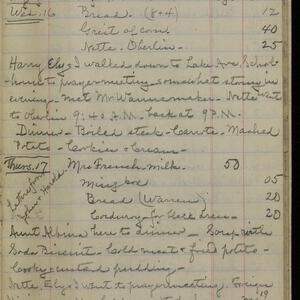 Wed. 16 Bread. (8+4) 12
Crest of corn 40
Nette. Oberlin - 25
Harry, Ely & I walked down to Lake Ave. School-
house to prayer meeting, somewhat stormy in
evening - met Mr. Wannemaker - Nette went
to Oberlin 9:40 A.M. back at 9 P.M.
Dinner - Boiled steak - Carrots - Mashed
Potato - Cookies & Cream -
Thurs. 17 Mrs French, milk. 50
05
Bread (Warren) 20
Corduroy for black dress - 20
Letter from
Aunt Albina here to dinner - Soup with
Soda Biscuit - Cold meat & fried potato -
Cooky & custard pudding -
Nette, Ely & I went to prayer meeting. Foreign
19